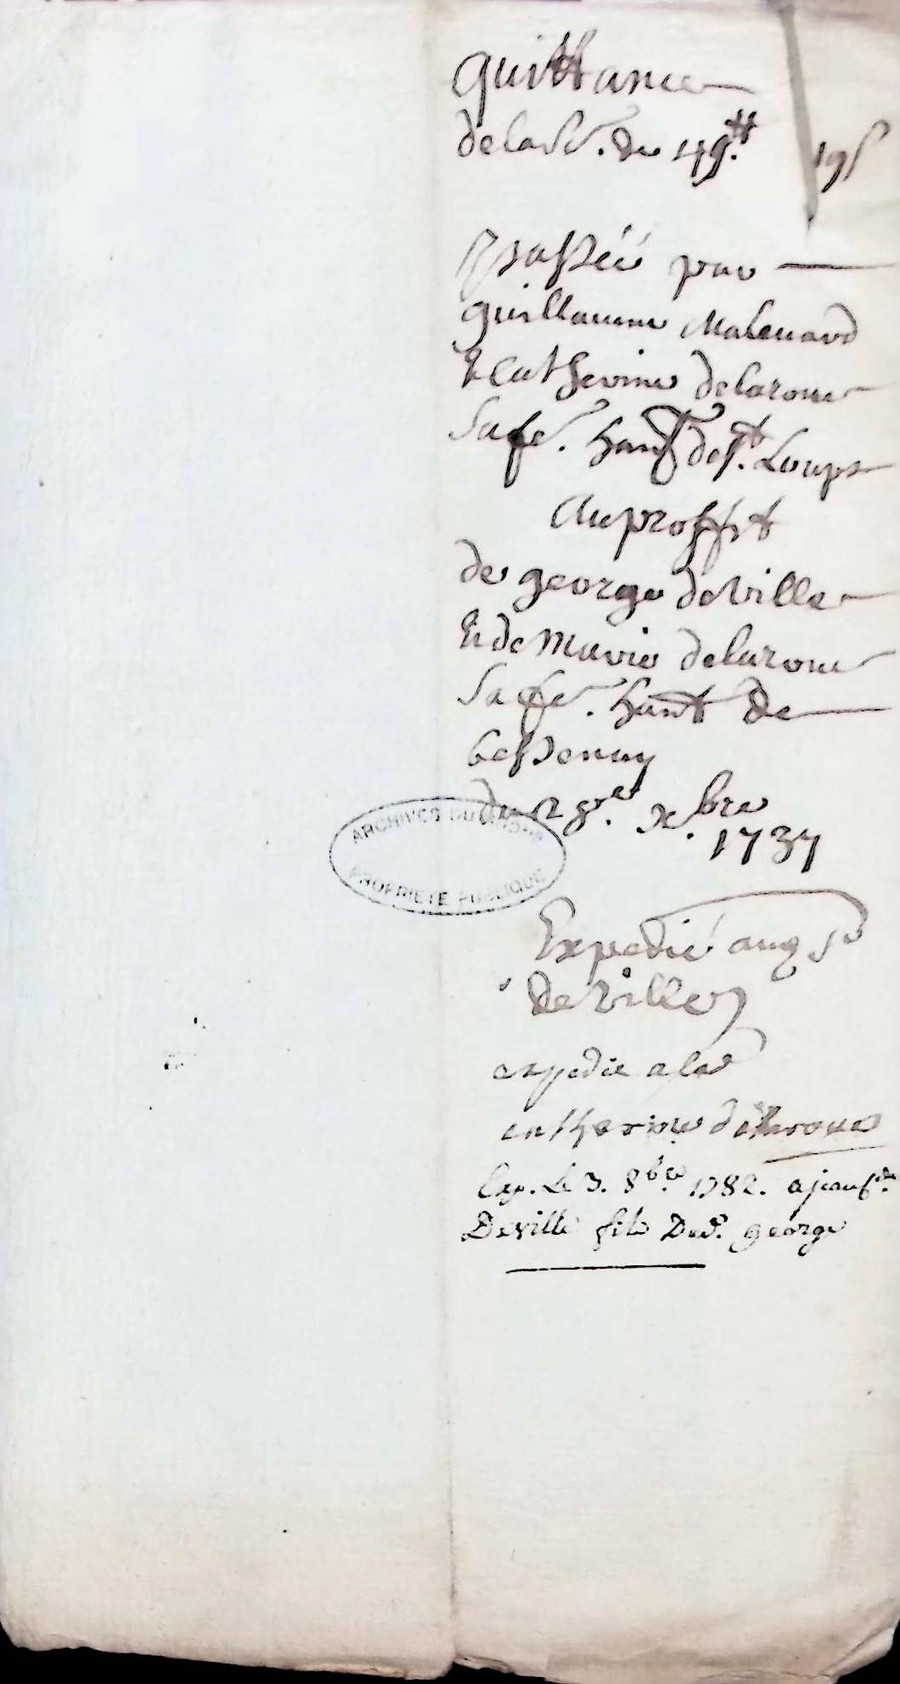 quittance
de la Se. de 199.tt 19s
passéé par
Guillaume Malenard
& Catherine delaroue
Sa fe. hant de st. Loup
Au proffit
de george deville
Et de Marie delaroue
Sa fe. hant de
bessenay
du 28.e xbre
1737
ARCHIVES DU RHONE
PROPRIÉTÉ PUBLIQUE
Expedié aud Sr
De Ville
expedie a lad
catherine delaroue
Exp. Le 3. 8bre 1782. a jean
Deville fils Dud. george